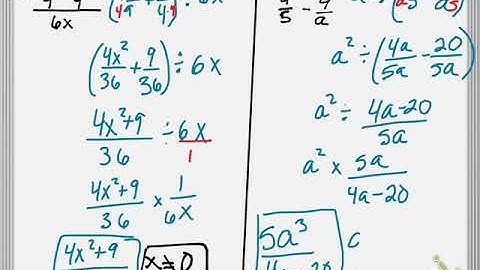 6x
(4x²/36 + 9/36) ÷ 6x
4x²+9/36 ÷ 6x/1
4x²+9/36 × 1/6x
4x²+9
x≠0
a/5 - 4/a
a² ÷ (4a/5a - 20/5a)
a² ÷ 4a-20/5a
a² × 5a/4a-20
5a³